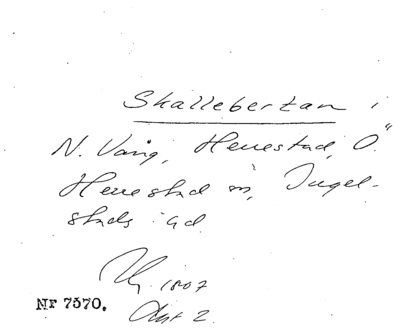 Skallebertan i
N. Vång, Herrestad, Ö.
Herrestad sn, Ingel-
stads hd
1807
Akt 2
Nr 7570.